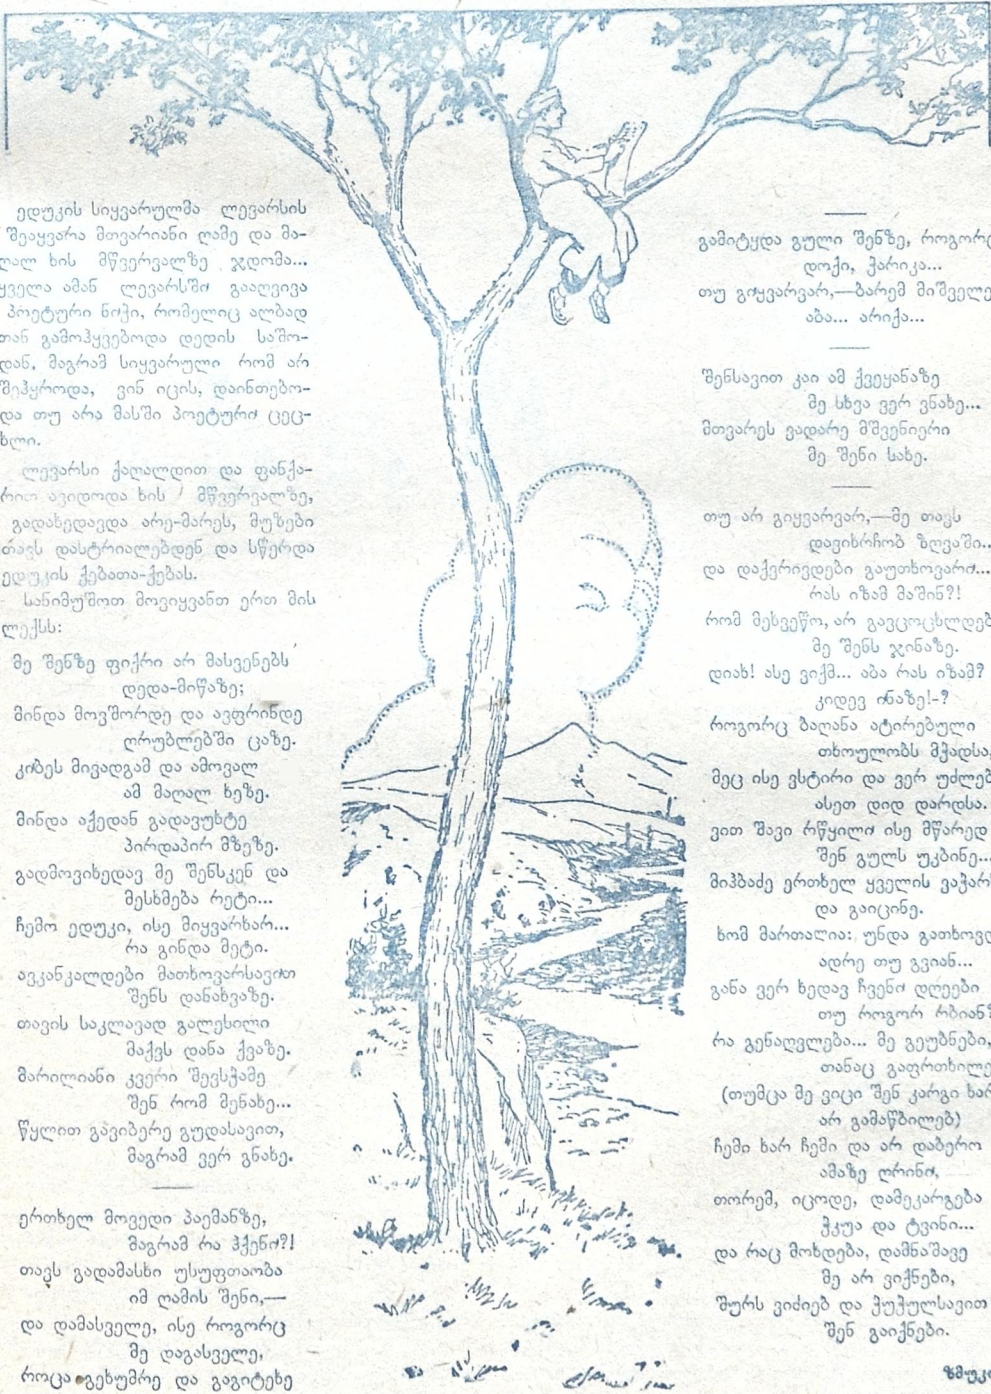 ედუკის სიყვარულმა ლევარსის
შეაყვარა მთვარიანი ღამე და მა-
ღალ ხის მწვერვალზე ჯდომა...
ყველა ამან ლევარსში გააღვივა
პოეტური ნიჭი, რომელიც ალბად
თან გამოჰყვებოდა დედის საშო-
დან, მაგრამ სიყვარული რომ არ
შეჰყროდა, ვინ იცის, დაინთებო-
და თუ არა მასში პოეტური ცეც-
ხლი.
ლევარსი ქაღალდით და ფანქა-
რით ავიდოდა ხის მწვერვალზე,
გადახედავდა არე-მარეს, მუზები
თავს დასტრიალებდენ და სწერდა
ედუკის ქებათა-ქებას.
სანიმუშოთ მოვიყვანთ ერთ მის
ლექსს:
მე შენზე ფიქრი არ მასვენებს
დედა-მიწაზე;
მინდა მოვშორდე და ავფრინდე
ღრუბლებში ცაზე.
კიბეს მივადგამ და ამოვალ
ამ მაღალ ხეზე.
მინდა აქედან გადავუხტე
პირდაპირ მზეზე.
გადმოვიხედავ მე შენსკენ და
მესხმება რეტი...
ჩემო ედუკი, ისე მიყვარხარ...
რა გინდა მეტი.
ავკანკალდები მათხოვარსავით
შენს დანახვაზე.
თავის საკლავად გალესილი
მაქვს დანა ქვაზე.
მარილიანი კვერი შევსჭამე
შენ რომ მენახე...
წყლით გავიბერე გუდასავით,
მაგრამ ვერ გნახე.
ერთხელ მოვედი პაემანზე,
მაგრამ რა ჰქენი?!
თავს გადამასხი უსუფთაობა
იმ ღამის შენი,—
და დამასველე, ისე როგორც
მე დაგასველე,
როცა გეხუმრე და გაგიტეხე
გამიტყდა გული შენზე, როგორც
დოქი, ჭარიკა...
თუ გიყვარვარ,—ბარემ მიშველე
აბა... არიქა...
შენსავით კაი ამ ქვეყანაზე
მე სხვა ვერ ვნახე...
მთვარეს ვადარე მშვენიერი
მე შენი სახე.
თუ არ გიყვარვარ,—მე თავს
დავიხრჩობ ზღვაში..
და დაქვრივდები გაუთხოვარი...
რას იზამ მაშინ?!
რომ მეხვეწო, არ გავცოცხლდებ
მე შენს ჯინაზე.
დიახ! ასე ვიქმ... აბა რას იზამ?
კიდევ ინაზე!-?
როგორც ბაღანა ატირებული
თხოულობს მჭადსა,
მეც ისე ვსტირი და ვერ უძლებ
ასეთ დიდ დარდსა.
ვით შავი რწყილი ისე მწარედ
შენ გულს უკბინე...
მიჰბაძე ერთხელ ყველის ვაჭარს
და გაიცინე.
ხომ მართალია: უნდა გათხოვდ
ადრე თუ გვიან...
განა ვერ ხედავ ჩვენი დღეები
თუ როგორ რბიან?
რა გენაღვლება... მე გეუბნები,
თანაც გაფრთხილე
(თუმცა მე ვიცი შენ კარგი ხარ
არ გამაწბილებ)
ჩემი ხარ ჩემი და არ დაბერო
ამაზე ღრინი,
თორემ, იცოდე, დამეკარგება
ჭკუა და ტვინი...
და რაც მოხდება, დამნაშავე
მე არ ვიქნები,
შურს ვიძიებ და ჭუჭულსავით
შენ გაიქნები.